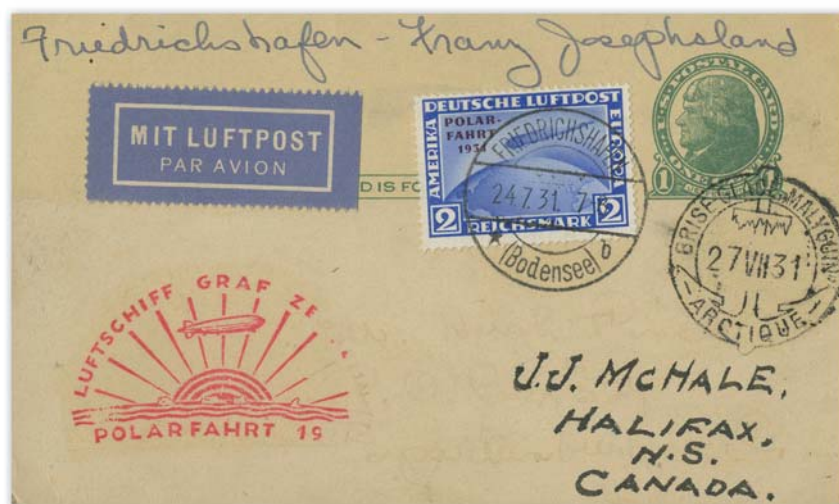 Friedrichshafen - Franz Josephsland
MIT LUFTPOST
PAR AVION
D IS FO
DEUTSCHE LUFTPOST
POLAR-
FAHRT
1931
AMERIKA
EUROPA
2 REICHSMARK 2
FRIEDRICHSHAFEN
24.7.31. 7-8
(Bodensee) b
U.S. POSTAL CARD
1 ONE CENT 1
BRISE-GLACE "MALYGUIN"
27 VII 31
ARCTIQUE
LUFTSCHIFF GRAF ZE
POLARFAHRT 19
J.J. McHALE,
HALIFAX,
N.S.
CANADA.